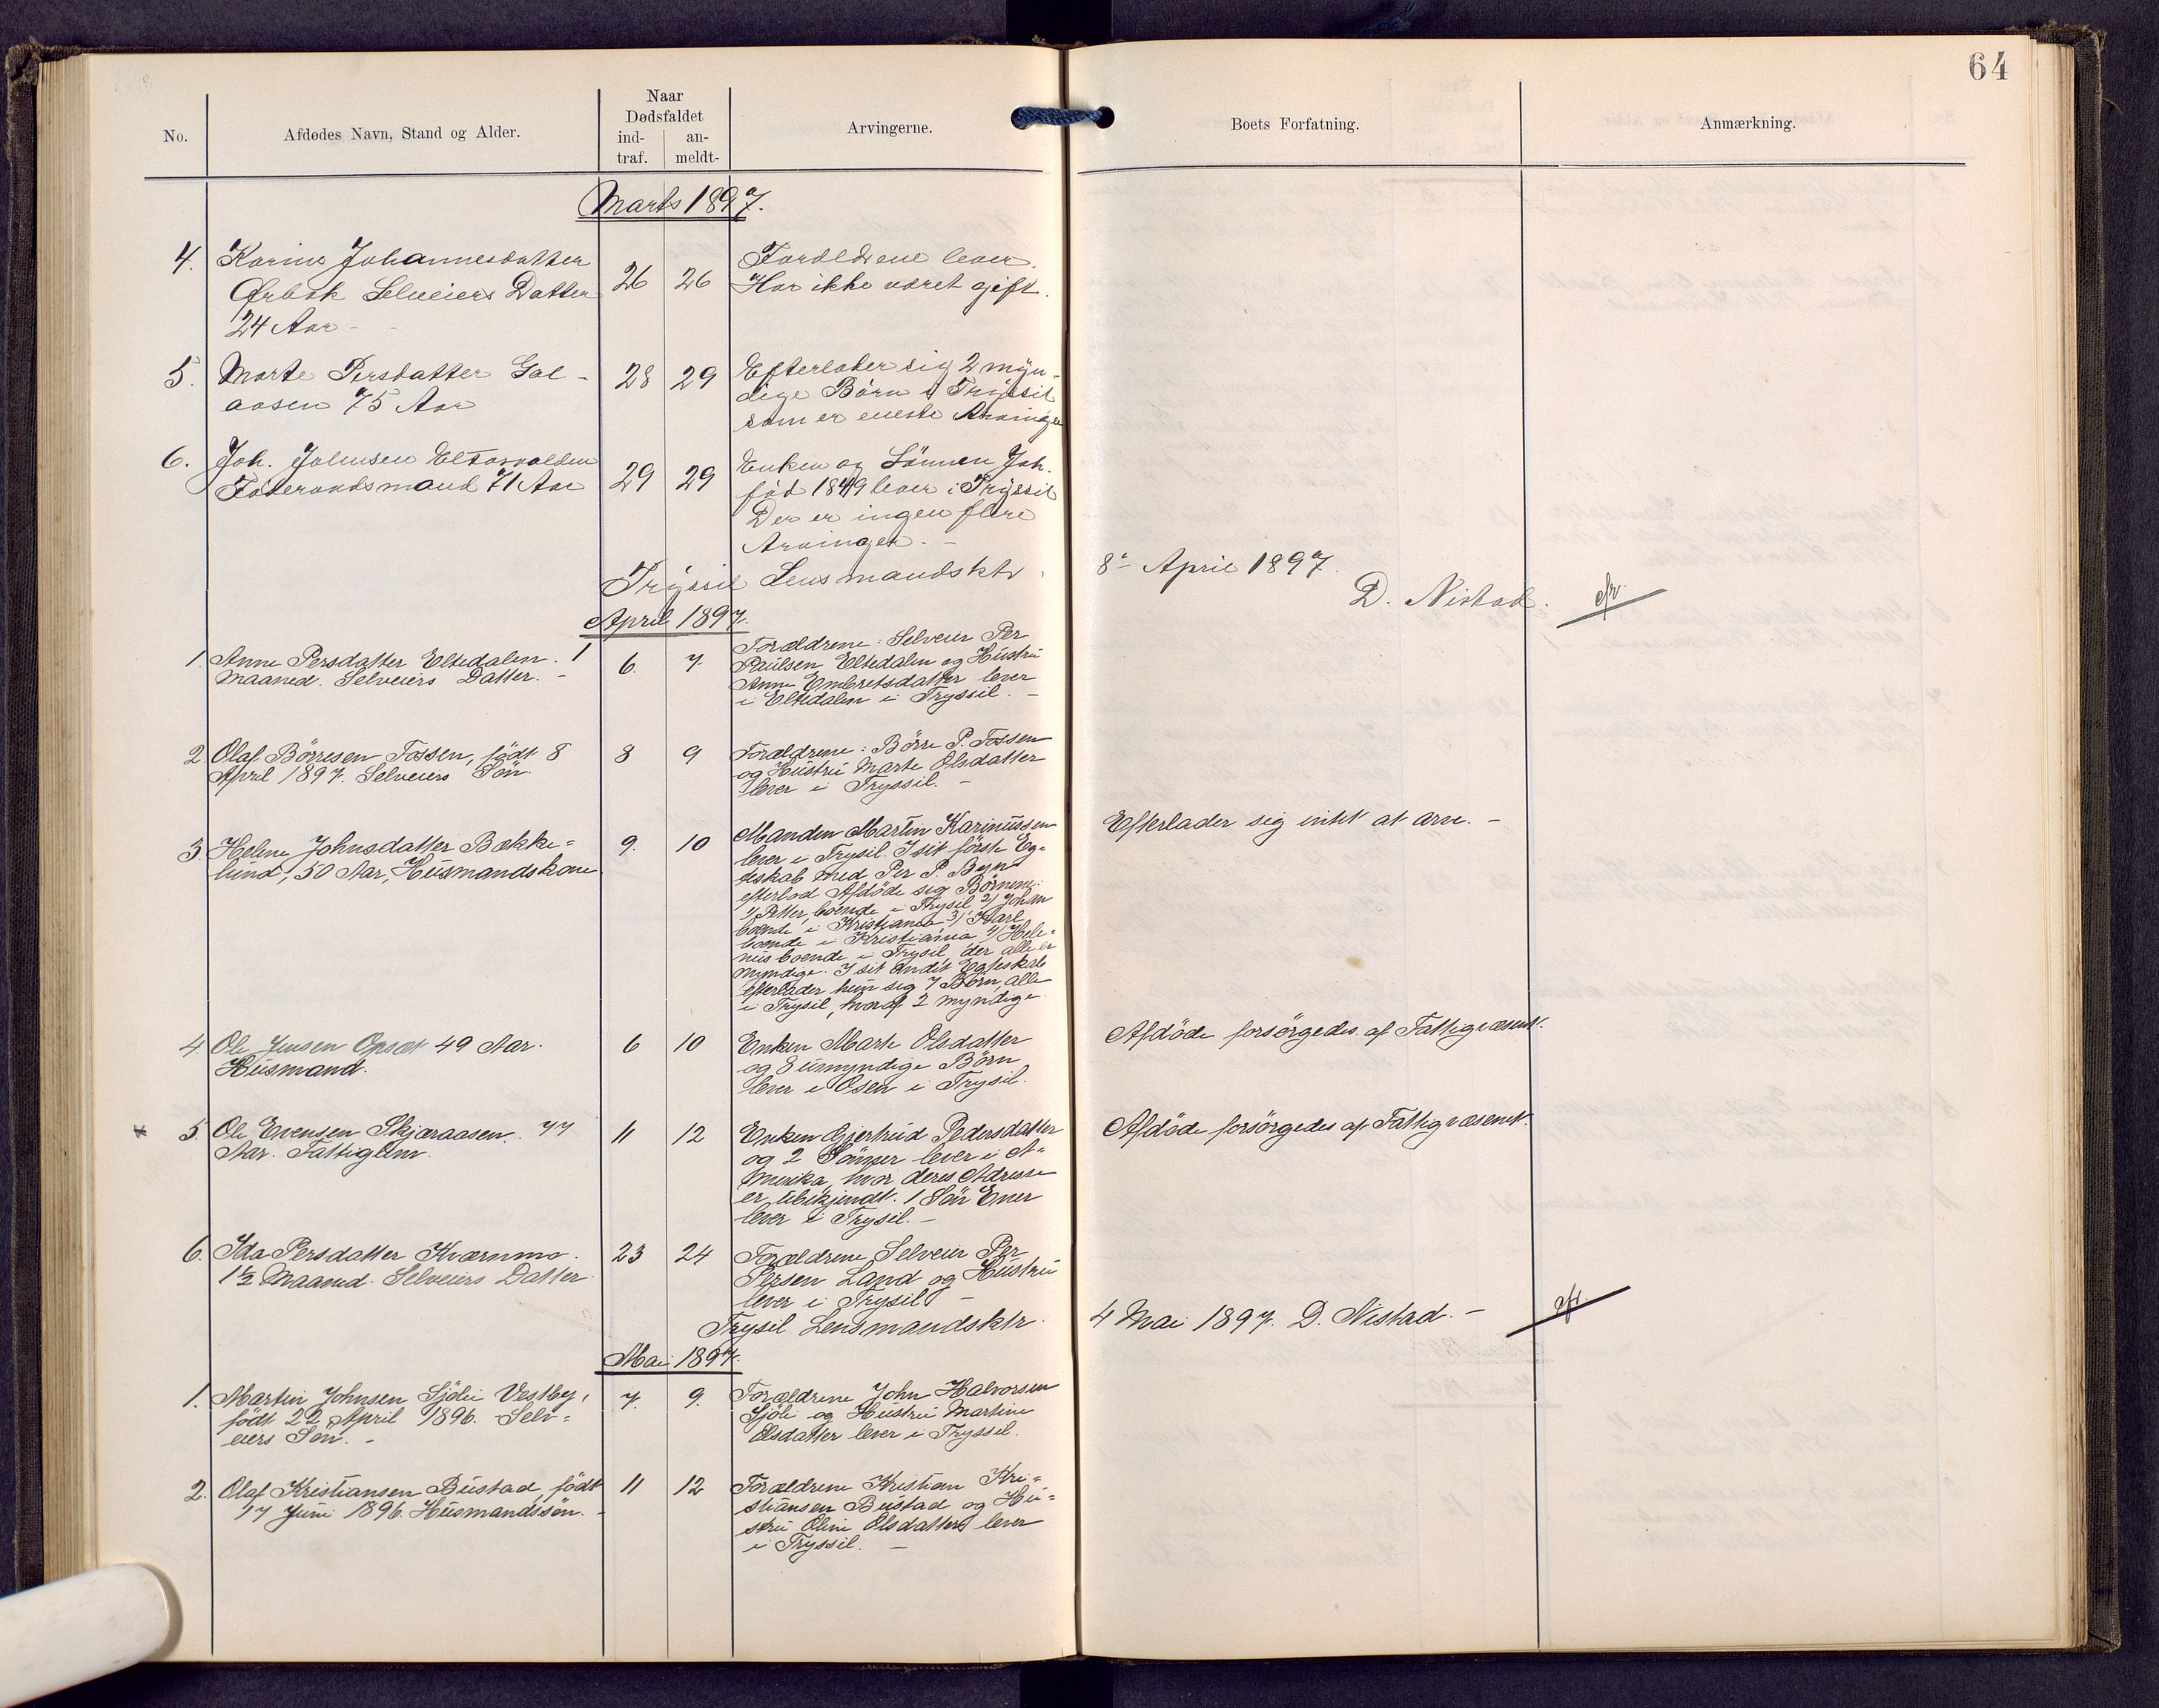 64
No.
Afdødes Navn, Stand og Alder.
Naar
Dødsfaldet
ind-
traf.
an-
meldt-
Arvingerne.
Boets Forfatning.
Anmærkning.
Marts 1897.
4. Karine Johannesdatter
Ørbæk Selveiers Datter
24 Aar -
26 26
Forældrene lever.
Har ikke været gift.
5. Marte Persdatter Gal-
aasen 75 Aar
28 29
Efterlader sig 2 myn-
dige Børn i Trysil
som er eneste Arvinger
6. Joh. Johnsen
Føderaadsmand 71 Aar
29 29
Enken og Sønnen Joh.
född 1849 lever i Trysil
Der er ingen flere
Arvinger. -
Trysil Lensmandsktr. 8de April 1897.
D. Nistad. cfr.
April 1897.
1. Anne Persdatter Eltedalen. 1
Maaned. Selveiers Datter. -
6. 7.
Forældrene: Selveier Per
Paulsen Eltedalen og Hustru
Anne Embretsdatter lever
i Eltedalen i Tryssil. -
2. Olaf Börresen Tossen, født 8
April 1897. Selveiers Søn.
8 9
Forældrene: Börre P. Tossen
og Hustru Marte Olsdatter
lever i Tryssil. -
3. Helene Johnsdatter Bække=
lund, 50 Aar, Husmandskone
9. 10
Manden Martin Karinussen
lever i Trysil. I sit første Eg=
teskab med Per P. Byn
efterlod Afdöde sig Börnene:
1) Petter, boende i Trysil 2) Johan
boende i Kristiania 3) Karl
boende i Kristiania 4) Hele=
nus boende i Trysil, der alle er
myndige. I sit andet Egteskab
efterlader hun sig 7 Börn, alle
i Trysil, hvoraf 2 myndige
Efterlader sig intet at arve. -
4. Ole Jensen Opsæt 49 Aar.
Husmand.
6 10
Enken Marte Olsdatter
og 8 umyndige Børn
lever i Osen i Trysil.
Afdöde forsörgedes af Fattigvæsenet.
5. Ole Evensen Skjæraasen. 77
Aar. Fattiglem.
11 12
Enken Gjertrud Pedersdatter
og 2 Sönner lever i A=
merika, hvor deres Adresse
er ubekjendt. 1 Sön Ener
lever i Trysil. -
Afdöde forsörgedes af Fattigvæsenet.
6. Ida Persdatter Kværnmo.
1½ Maaned. Selveiers Datter.
23 24
Forældrene Selveier Per
Persen Land og Hustru
lever i Trysil -
Trysil Lensmandsktr. 4 Mai 1897. D. Nistad. - cfr.
Mai 1897.
1. Martin Johnsen Sjöli Vestby,
født 22 April 1896. Selv=
eiers Søn. -
7. 9.
Forældrene John Halvorsen
Sjöli og Hustru Martine
Olsdatter lever i Tryssil.
2. Olaf Kristiansen Bustad, født
17 Juni 1896. Husmandssøn. -
11 12
Forældrene Kristian Kri=
stiansen Bustad og Hu=
stru Oline Olsdatter lever
i Tryssil. -